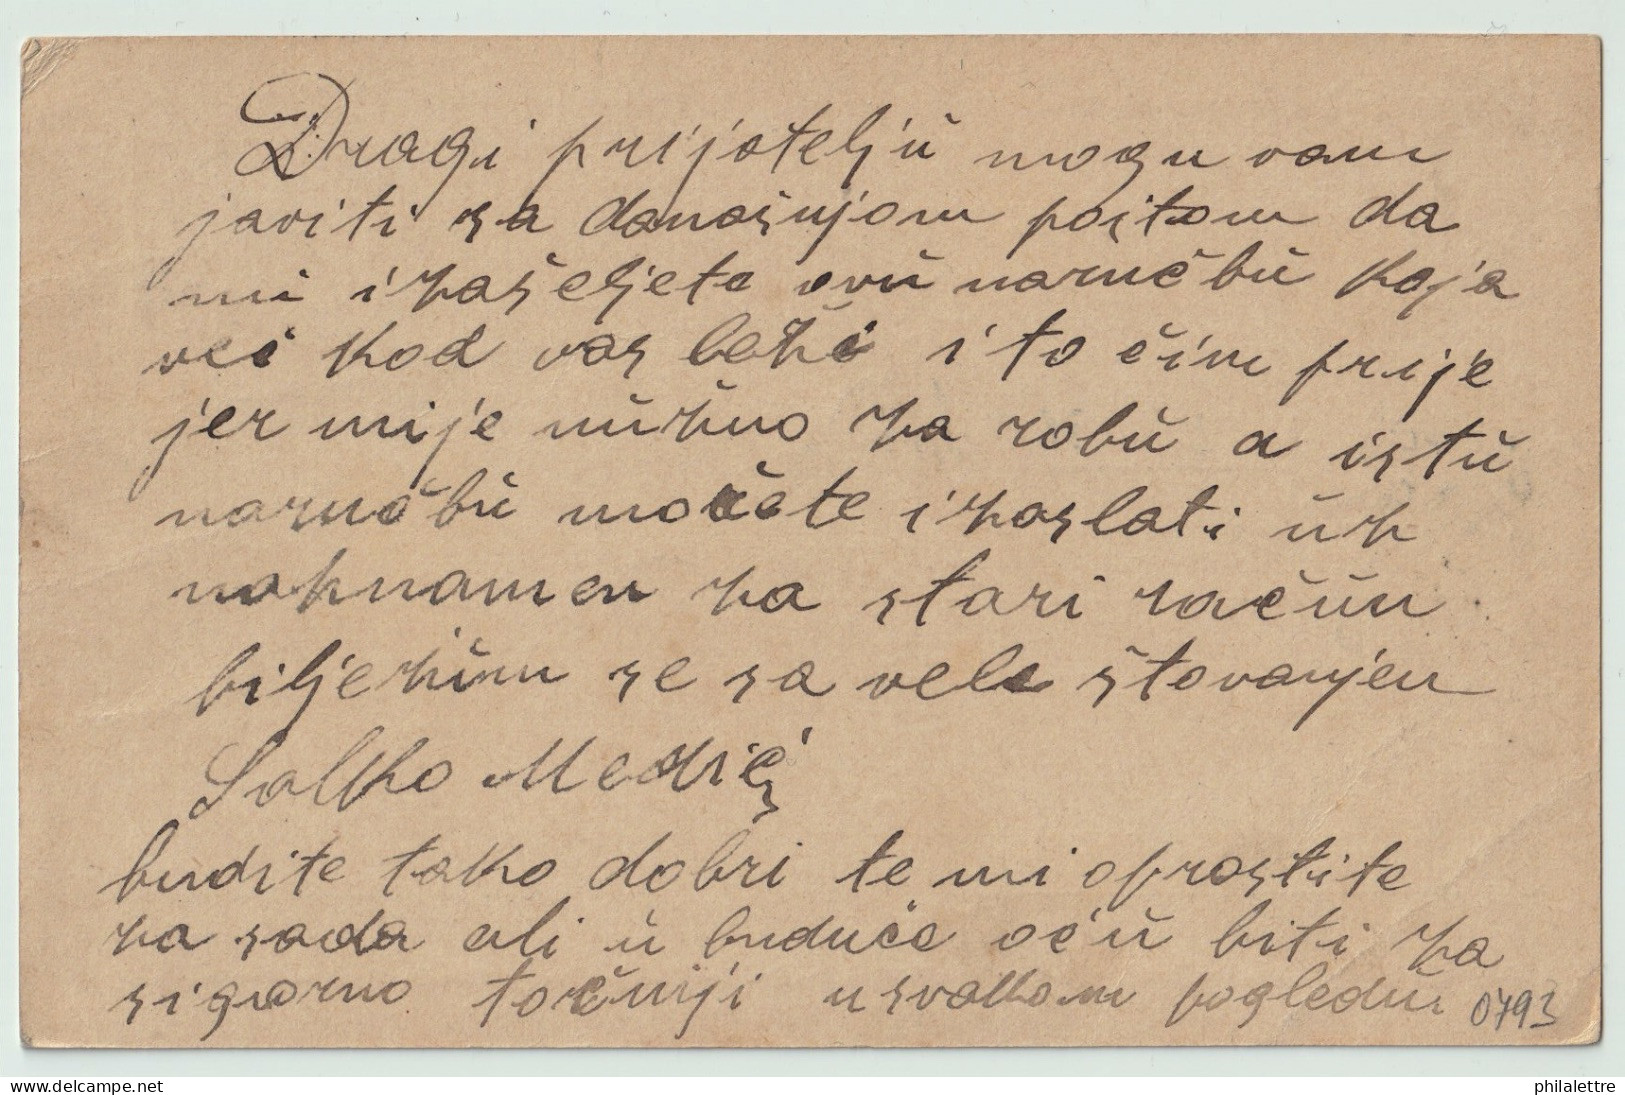 Dragi prijatelju mogu vam
javiti sa današnjom poštom da
mi izašeljete ovu naručbu koja
već kod vas leži i to čim prije
jer mi je nužno za robu a istu
naručbu možete izaslati uz
nahnamen za stari račun
bilježim se sa vele štovanjen
Salko Medić
budite tako dobri te mi oprostite
za sada ali u buduće oću biti za
sigorno točniji u svakom pogledu 0793
www.delcampe.net philalettre